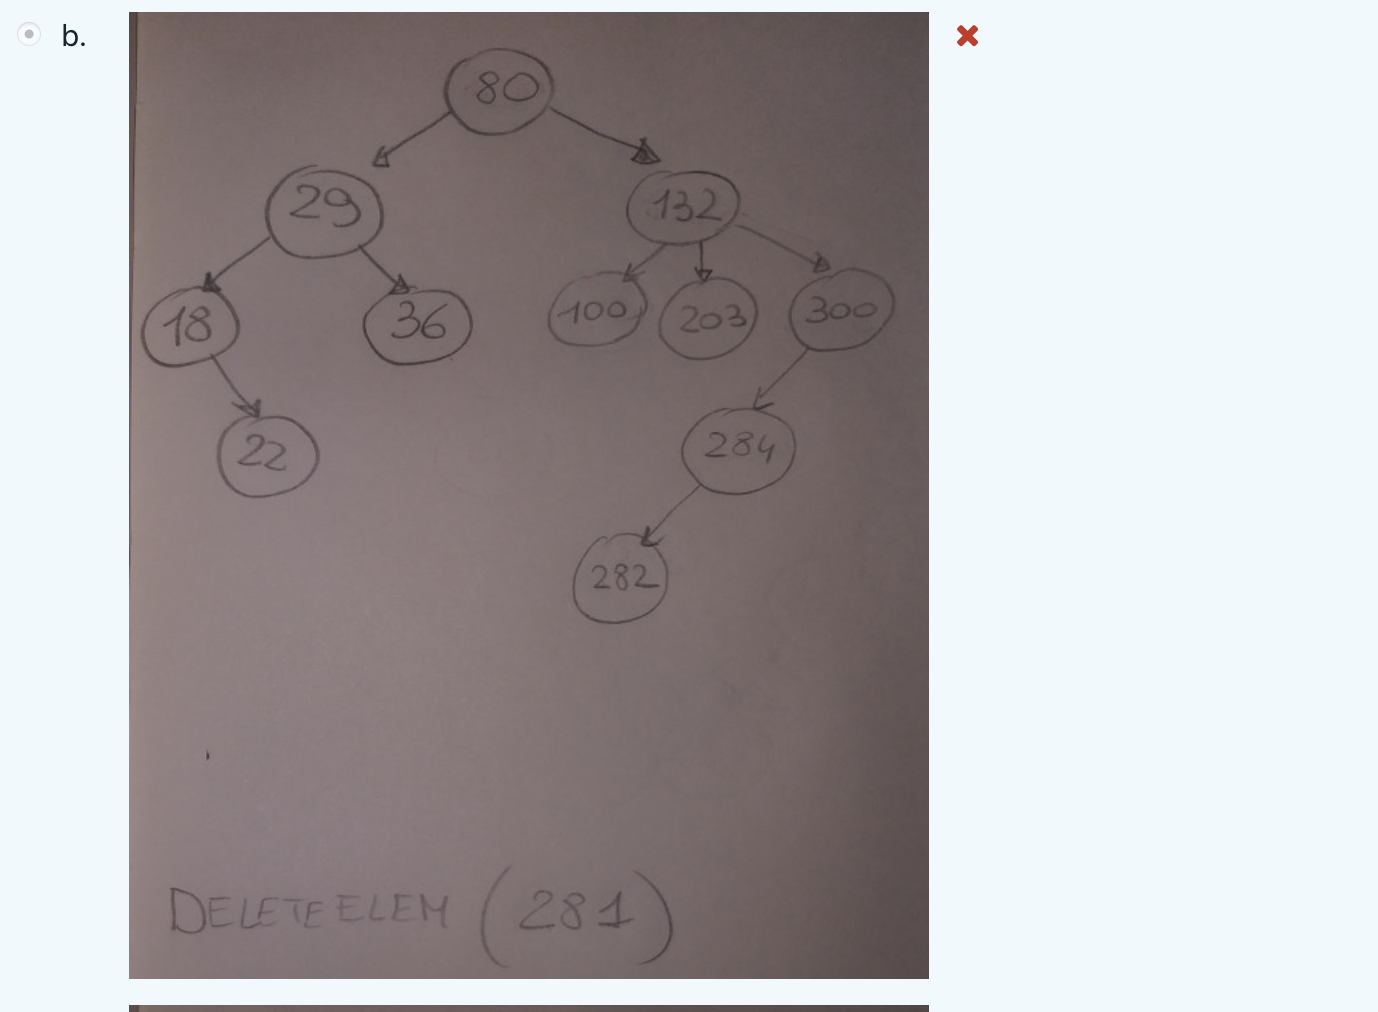 b.
80
29
132
18
36
100
203
300
22
284
282
DELETEELEM (281)